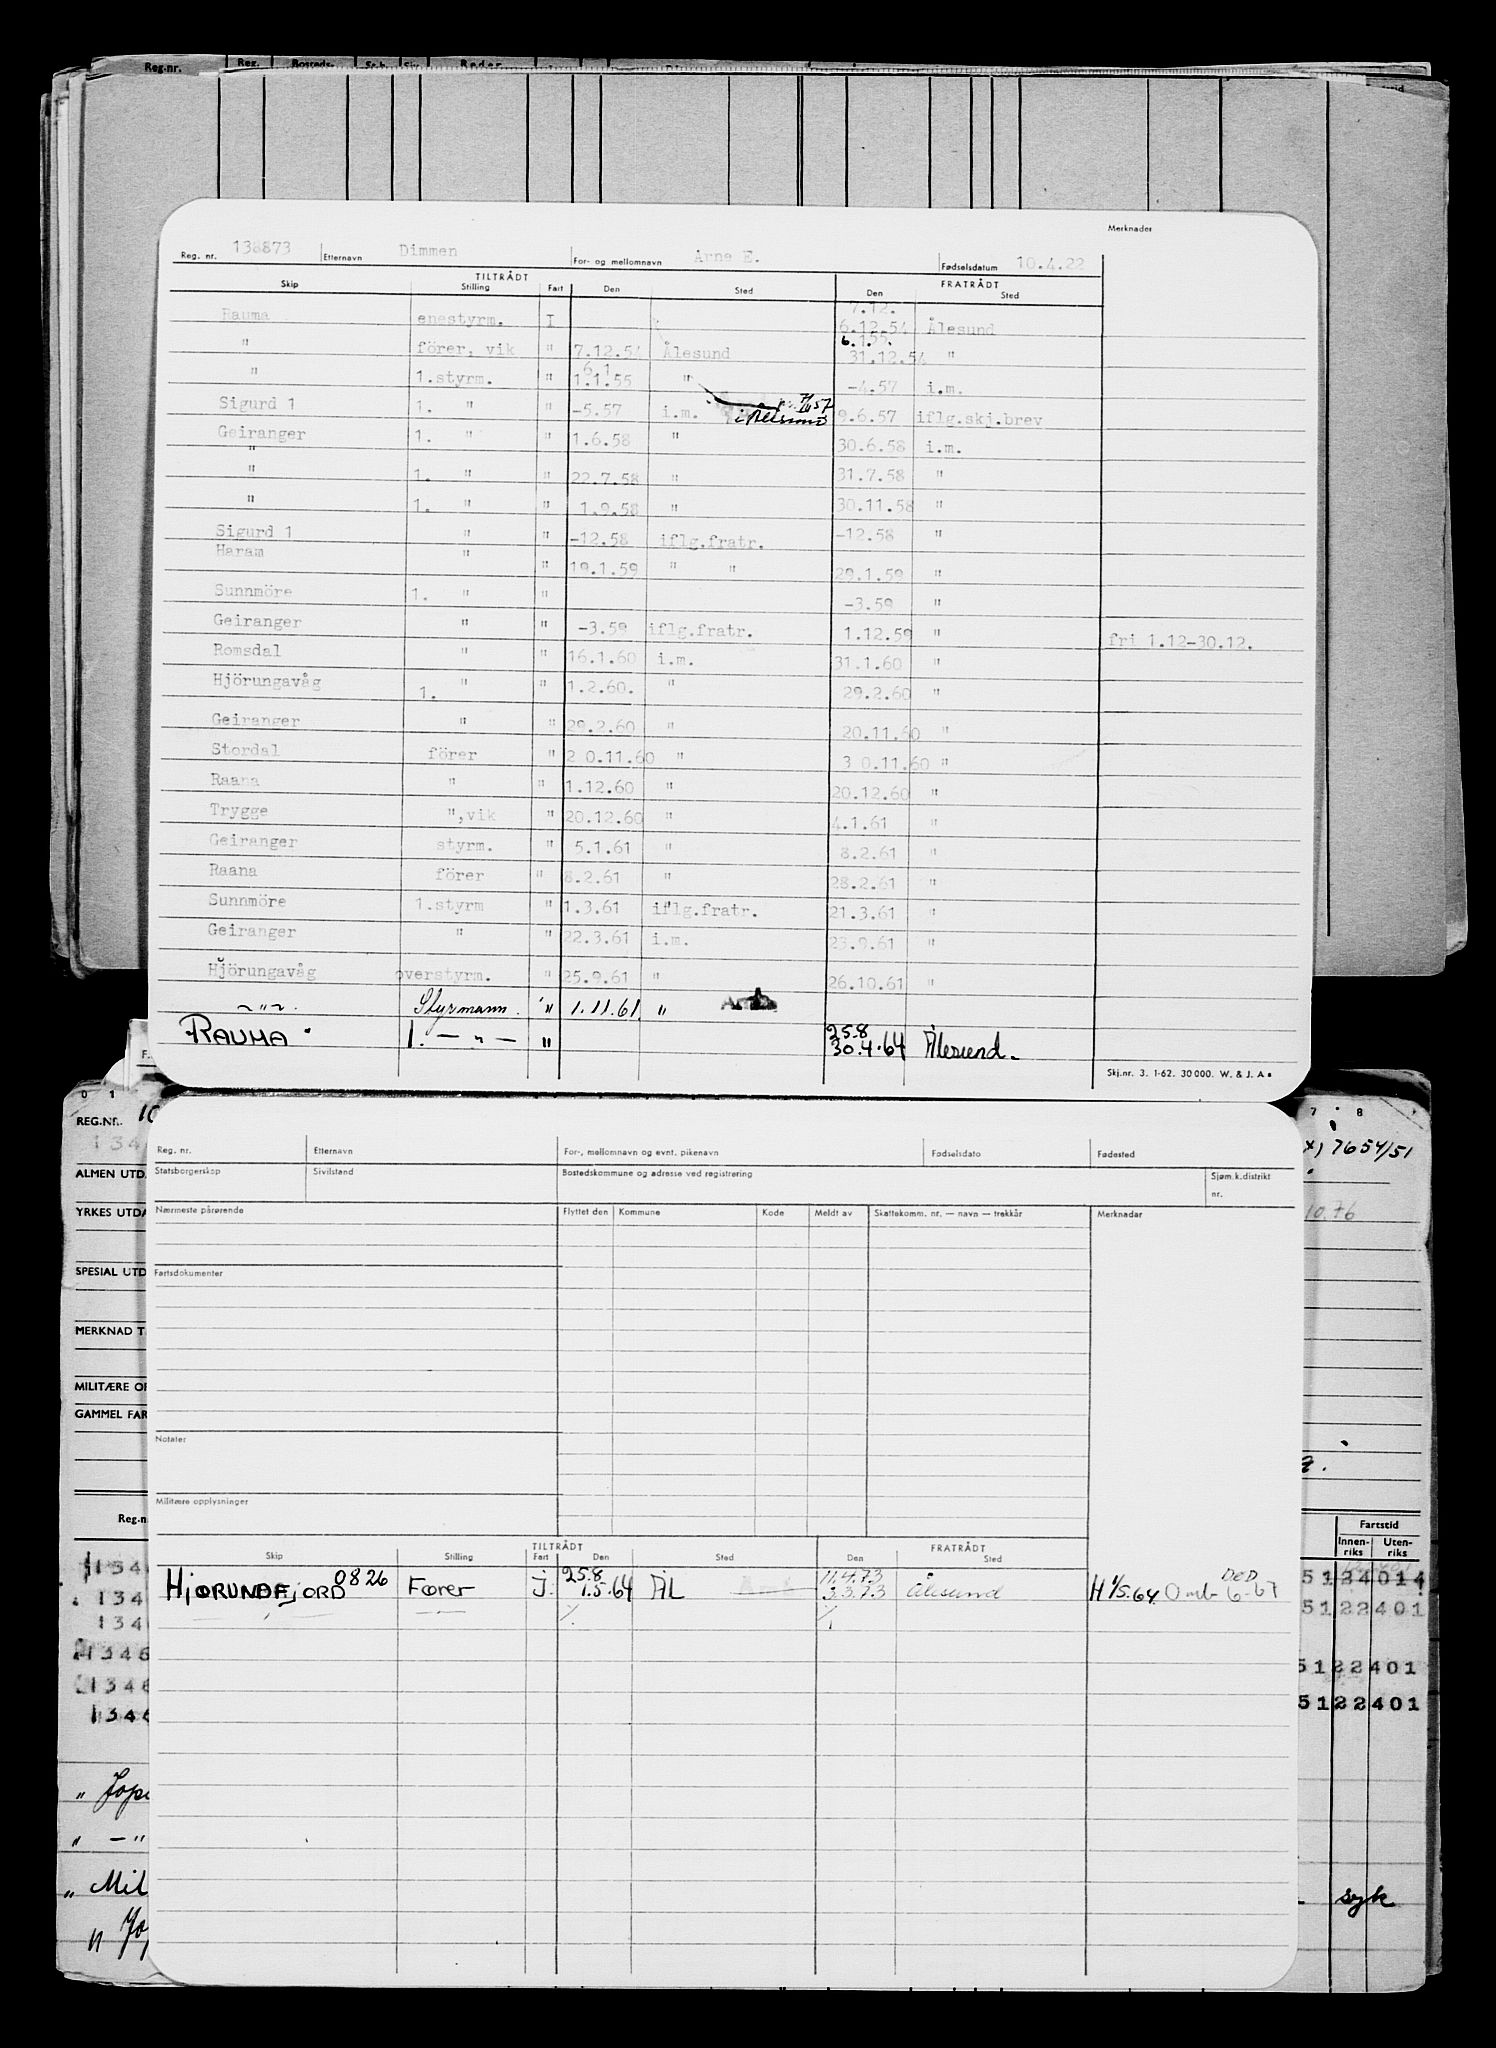 Reg.nr. Reg. Bosteds-
Merknader
Reg. nr. 138873 Etternavn Dimmen For- og mellomnavn Arne E. Fødselsdatum 10.4.22
TILTRÅDT FRATRÅDT
Skip Stilling Fart Den Sted Den Sted
7.12.
Rauma enestyrm. I 6.12.54 Ålesund
6.1.55.
" förer, vik " 7.12.54 Ålesund 31.12.54 "
6.1
" 1.styrm. " 1.1.55 " -4.57 i.m.
Sigurd 1 1. " " -5.57 i.m. 9.6.57 iflg.skj.brev
Geiranger 1. " " 1.6.58 " 30.6.58 i.m.
"
" 1. " " 22.7.58 " 31.7.58 "
" 1. " " 1.9.58 " 30.11.58 "
Sigurd 1 " " -12.58 iflg.fratr. -12.58 "
Haram " " 19.1.59 " " 29.1.59 "
Sunnmöre 1. " " -3.59 "
Geiranger " " -3.59 iflg.fratr. 1.12.59 " fri 1.12-30.12.
Romsdal " " 16.1.60 i.m. 31.1.60 "
Hjörungavåg 1. " " 1.2.60. " 29.2.60 "
Geiranger " " 29.2.60 " 20.11.60 "
Stordal förer " 2 0.11.60 " 3 0.11.60 "
Raana " " 1.12.60 " 20.12.60 "
Trygge ",vik " 20.12.60 " 4.1.61 "
Geiranger styrm. " 5.1.61 " 8.2.61 "
Raana förer " 8.2.61 " 28.2.61 "
Sunnmöre 1.styrm " 1.3.61 iflg.fratr. 21.3.61 "
Geiranger " " 22.3.61 i.m. 23.9.61 "
Hjörungavåg overstyrm. " 25.9.61 " 26.10.61 "
~"~. Styrmann. " 1.11.61. "
RAUMA 1. — " — " 25.8 30.4.64 Ålesund.
Skj.nr. 3. 1-62. 30 000. W. & J. A s
0 1 7 8
REG.NR. 10
134
x) 7654/51
ALMEN UTDA
YRKES UTDA 10.76
SPESIAL UTD
MERKNAD T
MILITÆRE OP
GAMMEL FAR
Reg. nr. Etternavn For-, mellomnavn og evnt. pikenavn Fødselsdato Fødested
Statsborgerskap Sivilstand Bostedskommune og adresse ved registrering Sjøm.k.distrikt
nr.
Nærmeste pårørende Flyttet den Kommune Kode Meldt av Skattekomm. nr. — navn — trekkår Merknader
Fartsdokumenter
Notater
Militære opplysninger
Reg.n Fartstid
Innen-riks Uten-riks
TILTRÅDT FRATRÅDT
Skip Stilling Fart Den Sted Den Sted
HJORUNDFJORD 0826 Fører J. 25.8 1.5.64 ÅL 11.4.73 3.3.73 Ålesund H 1/5.64. Omb 6-67
134 5122401
134 5122401
1346 5122401
1346
1346 5122401
" Jope
" — "
" Mil syk
" Jo